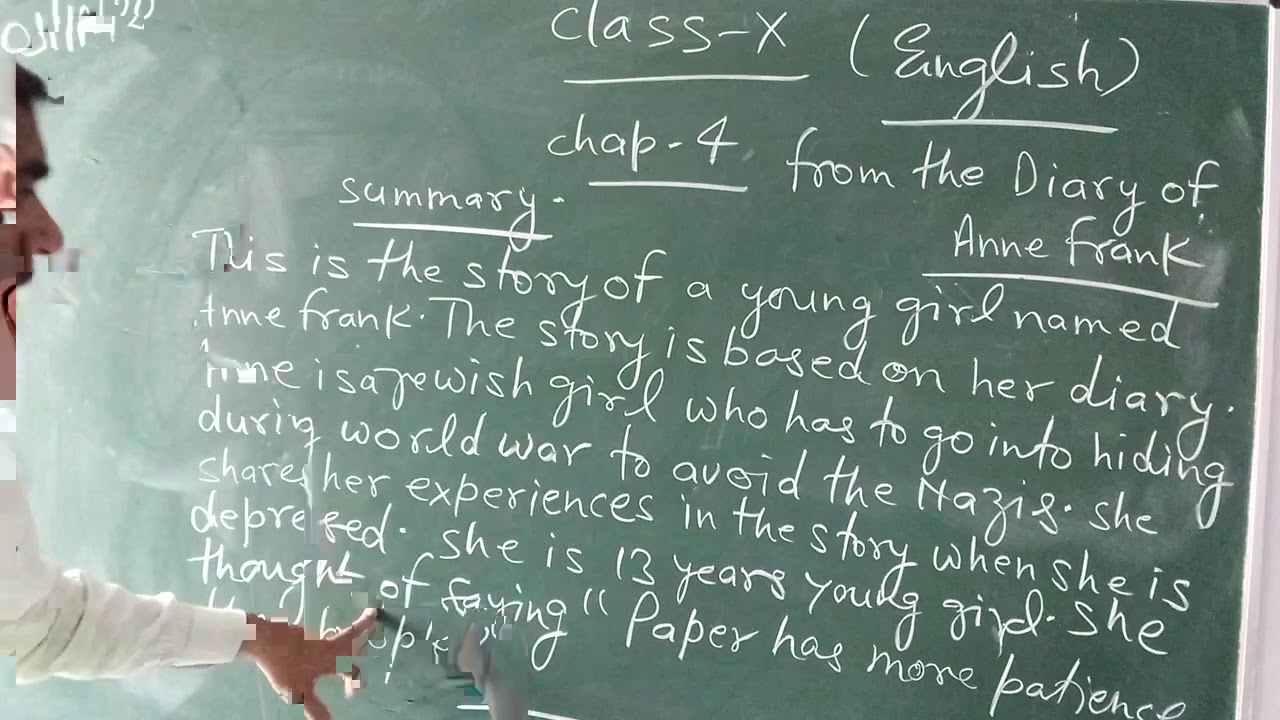 class-X (English)
chap-4 from the Diary of
Anne frank
summary.
This is the story of a young girl named
Anne frank. The story is based on her diary.
Anne is a jewish girl who has to go into hiding
during world war to avoid the Nazis. she
shares her experiences in the story when she is
depressed. she is 13 years young girl. she
thought of saying "Paper has more patience